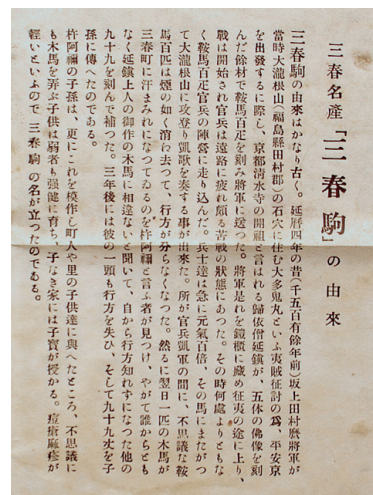 三春名產「三春駒」の由來
三春駒の由來はかなり古く。延曆四年の昔(千五百有餘年前)坂上田村麿將軍が
當時大瀧根山(福島縣田村郡)の石穴に住む大多鬼丸といふ夷賊征討の爲、平安京
を出發するに際し、京都淸水寺の開祖と言はれる歸依僧延鎭が、五体の佛像を刻
んだ餘材で鞍馬百疋を刻み將軍に送つた。將軍是れを鎧櫃に藏め征夷の途に上り、
戰は開始され官兵は遠路に疲れ頗る苦戰の狀態にあつた。その時何處よりともな
く鞍馬百疋官兵の陣營に走り込んだ。兵士達は急に元氣百倍、その馬にまたがつ
て大瀧根山に攻登り凱歌を奏する事が出來た。所が官兵凱軍の間に、不思議な鞍
馬百匹は煙の如く消へ去つて、行方が分らなくなつた。然るに翌日一匹の木馬が
三春町に汗まみれになつてゐるのを杵阿彌と言ふ者が見つけ、やがて誰からとも
なく延鎭上人の御作の木馬に相違ないと聞いて、自から行方知れずになつた他の
九十九を刻んで補つた。三年後には彼の一頭も行方を失ひ、そして九十九丈を子
孫に傳へたのである。
杵阿彌の子孫は、更にこれを模作し町人や里の子供達に與へたところ、不思議に
も木馬を弄ぶ子供は弱者も强健に育ち、子なき家には子寶が授かる。痘瘡麻疹が
輕いといふので 三春駒 の名が立つたのである。